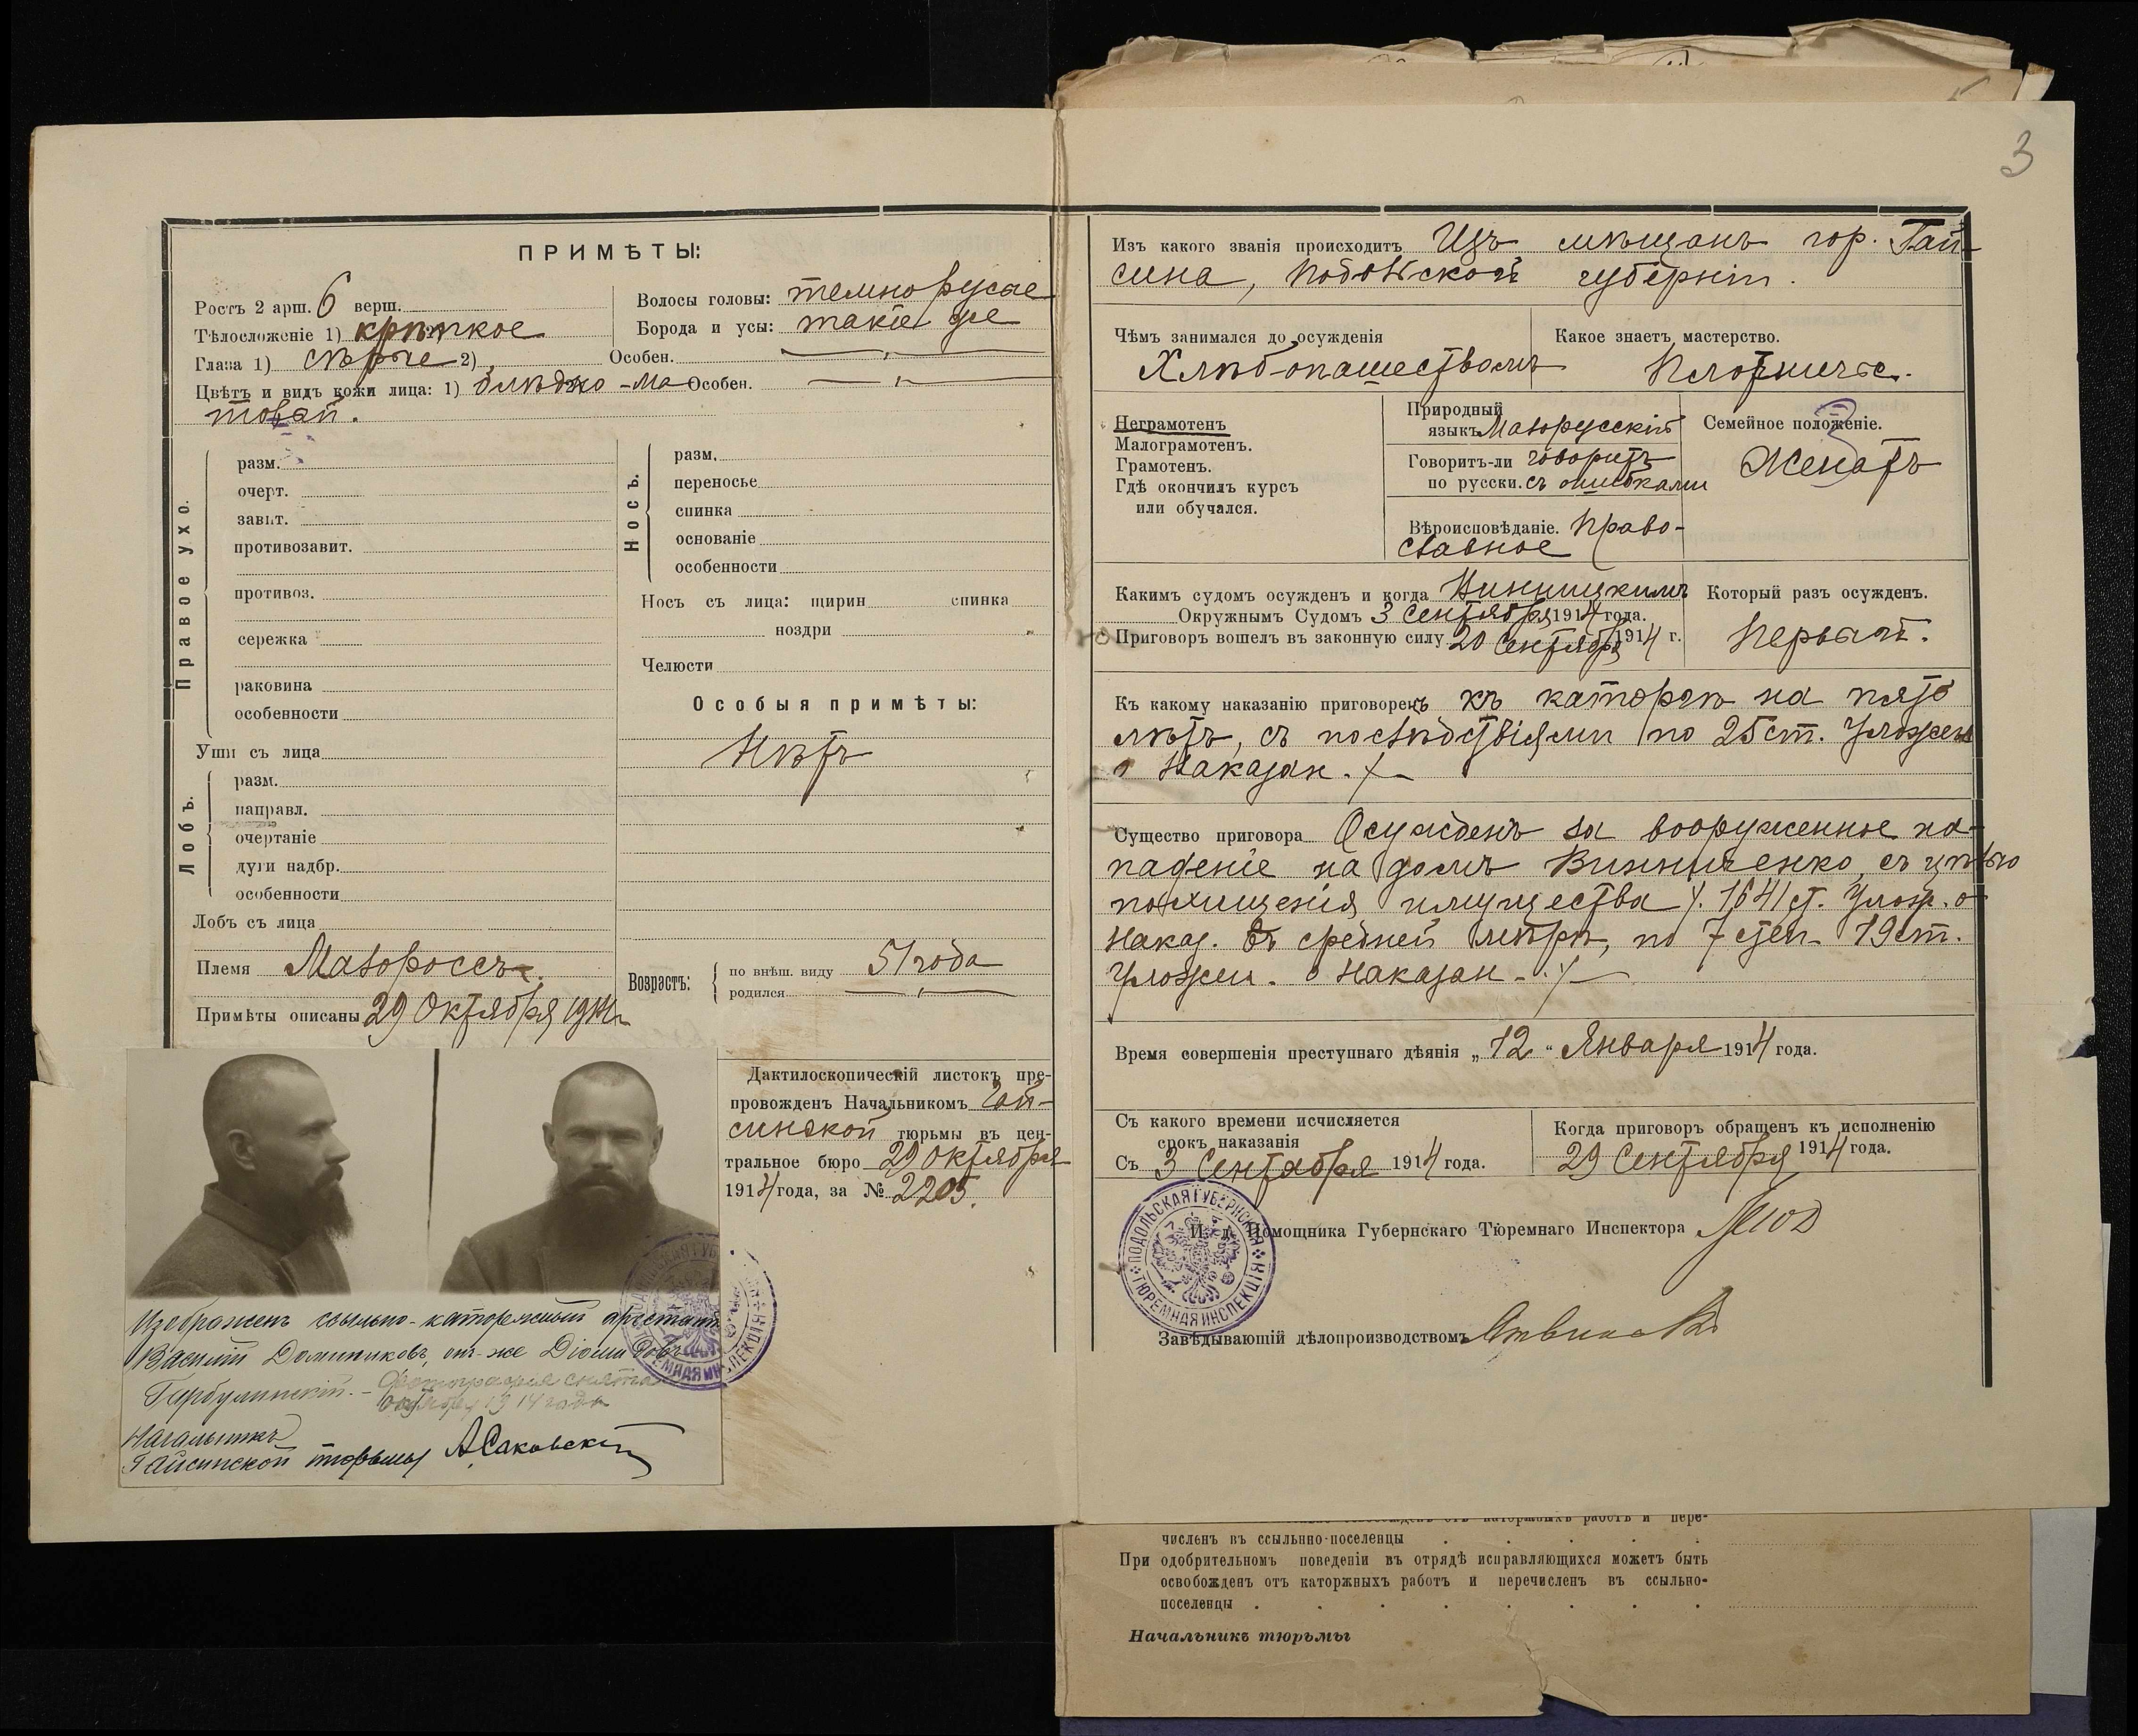 3
ПРИМѢТЫ:
Ростъ 2 арш. 6 верш.
Тѣлосложеніе 1) крѣпкое
Глаза 1) сѣрые 2)
Волосы головы: темнорусые
Борода и усы: такіе же
Особен.
Цвѣтъ и видъ кожи лица: 1) блѣдно-ма- Особен.
товый.
Правое ухо.
разм.
очерт.
завит.
противозавит.
противоз.
сережка
раковина
особенности
Уши съ лица
Лобъ.
разм.
направл.
очертаніе
дуги надбр.
особенности
Лобъ съ лица
Племя Малороссъ.
Примѣты описаны 29 Октября 1914 г.
Носъ.
разм.
переносье
спинка
основаніе
особенности
Носъ съ лица: ширин спинка
ноздри
Челюсти
Особыя примѣты:
Нѣтъ
Возрастъ:
по внѣш. виду 51 года
родился
Дактилоскопическій листокъ пре-
провожденъ Начальникомъ Гай-
синской тюрьмы въ цен-
тральное бюро 29 Октября
1914 года, за № 2205.
Изображенъ ссыльно-каторжный арестантъ
Василій Доминиковъ, онъ-же Діомидовъ
Гарбулинскій. – Фотографія снята
октября 1914 года
Начальникъ
Гайсинской тюрьмы А. Саковскій
Изъ какого званія происходитъ Изъ мѣщанъ гор. Гай-
сина, Подольской губерніи.
Чѣмъ занимался до осужденія
Хлѣбопашествомъ
Какое знаетъ мастерство.
Плотничье.
Неграмотенъ
Малограмотенъ.
Грамотенъ.
Гдѣ окончилъ курсъ
или обучался.
Природный
языкъ Малорусскій
Говоритъ-ли говоритъ
по русски. съ ошибками
Вѣроисповѣданіе. Право-
славное
Семейное положеніе.
Женатъ
Какимъ судомъ осужденъ и когда Винницкимъ
Окружнымъ Судомъ 3 Сентября 1914 года.
Приговоръ вошелъ въ законную силу 20 Сентября 1914 г.
Который разъ осужденъ.
Первый.
Къ какому наказанію приговоренъ къ каторгѣ на пять
лѣтъ, съ послѣдствіями по 25 ст. Уложен.
о Наказан.
Существо приговора Осужденъ за вооруженное на-
паденіе на домъ Винниченко, съ цѣлью
похищенія имущества 1641 ст. Улож. о
Наказ. въ средней мѣрѣ, по 7 степ. 19 ст.
Уложен. о Наказан.
Время совершенія преступнаго дѣянія „12“ Января 1914 года.
Съ какого времени исчисляется
срокъ наказанія
Съ 3 Сентября 1914 года.
Когда приговоръ обращенъ къ исполненію
29 Сентября 1914 года.
ПОДОЛЬСКАЯ ГУБЕРНСКАЯ
ТЮРЕМНАЯ ИНСПЕКЦІЯ
И. д. Помощника Губернскаго Тюремнаго Инспектора
Завѣдывающій дѣлопроизводствомъ
численъ въ ссыльно-поселенцы
При одобрительномъ поведеніи въ отрядѣ исправляющихся можетъ быть
освобожденъ отъ каторжныхъ работъ и перечисленъ въ ссыльно-
поселенцы
Начальникъ тюрьмы